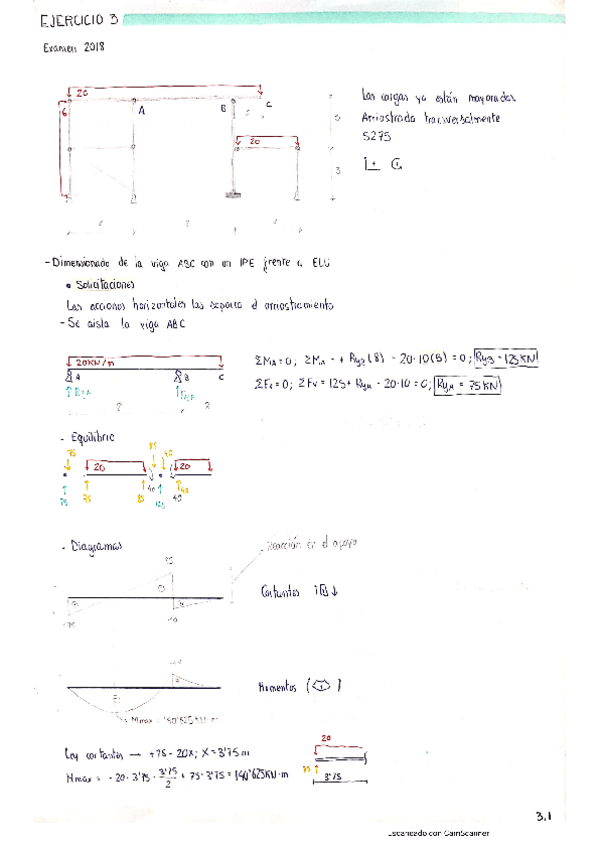 EJERCICIO 3
Examen 2018
20
6
A
B
C
20
3
Las cargas ya están mayoradas
Arriostrada transversalmente
S275
- Dimensionado de la viga ABC con un IPE frente a ELU
• Solicitaciones
Las acciones horizontales las soporta el arriostramiento
- Se aisla la viga ABC
20KN/m
A
B
C
RyA
RyB
2
ΣMA = 0; ΣMA = + RyB (8) - 20·10(5) = 0; RyB = 125KN
ΣFv = 0; ΣFv = 125 + RyA - 20·10 = 0; RyA = 75KN
- Equilibrio
75
20
85
40
20
75
75
85
40
125
40
40
- Diagramas
Reacción en el apoyo
Cortantes
Momentos
Mmax = 140'625 KN·m
Ley cortantes → +75 - 20x; X = 3'75 m
Mmax = - 20·3'75· 3'75/2 + 75·3'75 = 140'625KN·m
20
75
3'75
3.1
Escaneado con CamScanner